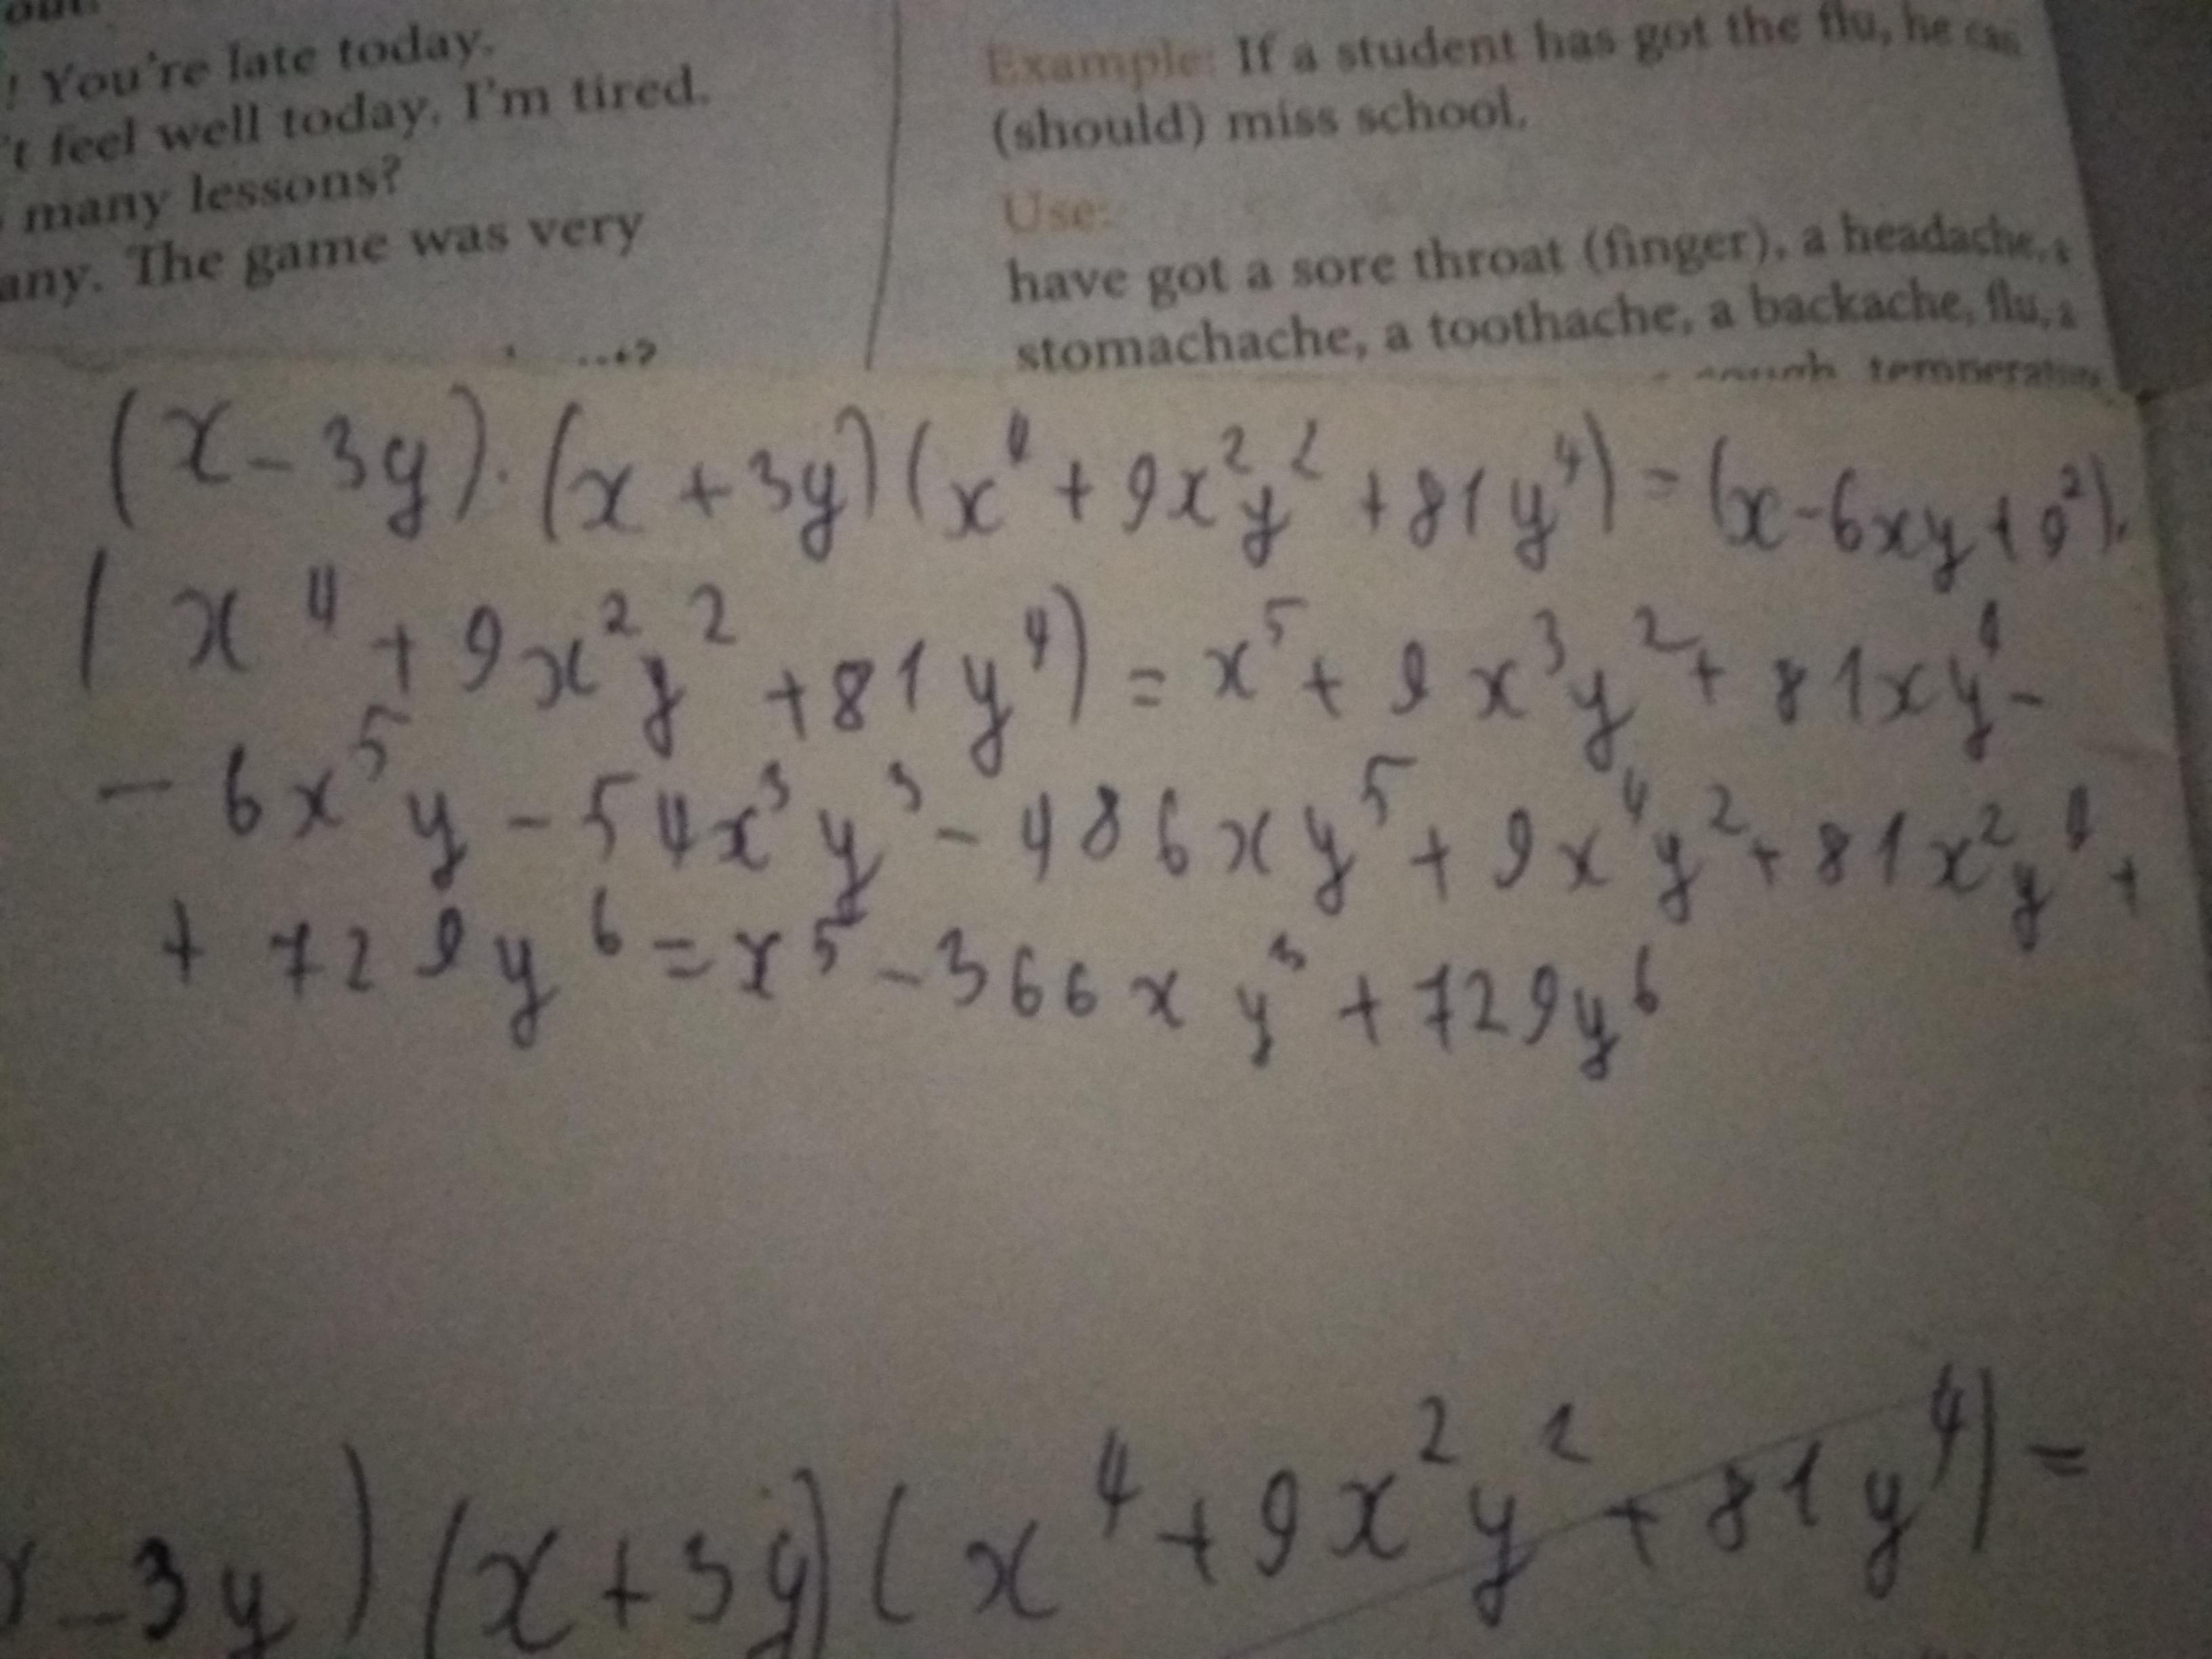 ! You're late today.
't feel well today. I'm tired.
many lessons?
any. The game was very
Example: If a student has got the flu, he can
(should) miss school.
Use:
have got a sore throat (finger), a headache, a
stomachache, a toothache, a backache, flu, a
(x - 3y) · (x + 3y)(x⁴ + 9x²y² + 81y⁴) = (x - 6xy + 9²) ·
(x⁴ + 9x²y² + 81y⁴) = x⁵ + 9x³y² + 81xy⁴ -
- 6x⁵y - 54x³y³ - 486xy⁵ + 9x⁴y² + 81x²y⁴ +
+ 729y⁶ = x⁵ - 366xy³ + 729y⁶
x - 3y)(x + 3y)(x⁴ + 9x²y² + 81y⁴) =